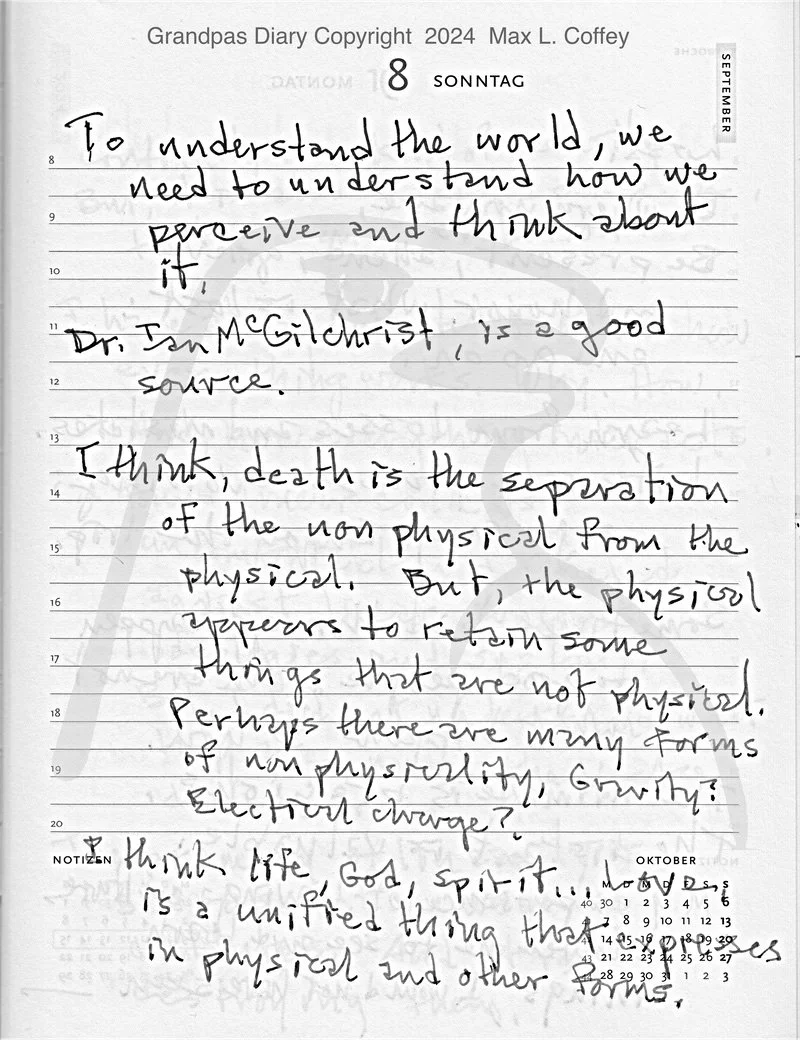 Grandpas Diary Copyright 2024 Max L. Coffey
8 SONNTAG
SEPTEMBER
To understand the world, we
8
need to understand how we
9
perceive and think about
10
it.
11
Dr. Ian McGilchrist, is a good
12
source.
13
I think, death is the separation
14
of the non physical from the
15
physical. But, the physical
16
appears to retain some
17
things that are not physical.
18
Perhaps there are many forms
19
of non physicality, Gravity?
Electrical charge?
20
NOTIZEN
I think life, God, spirit... Love,
is a unified thing that expresses
in physical and other forms.
OKTOBER
M D M D F S S
40 30 1 2 3 4 5 6
41 7 8 9 10 11 12 13
42 14 15 16 17 18 19 20
43 21 22 23 24 25 26 27
44 28 29 30 31 1 2 3